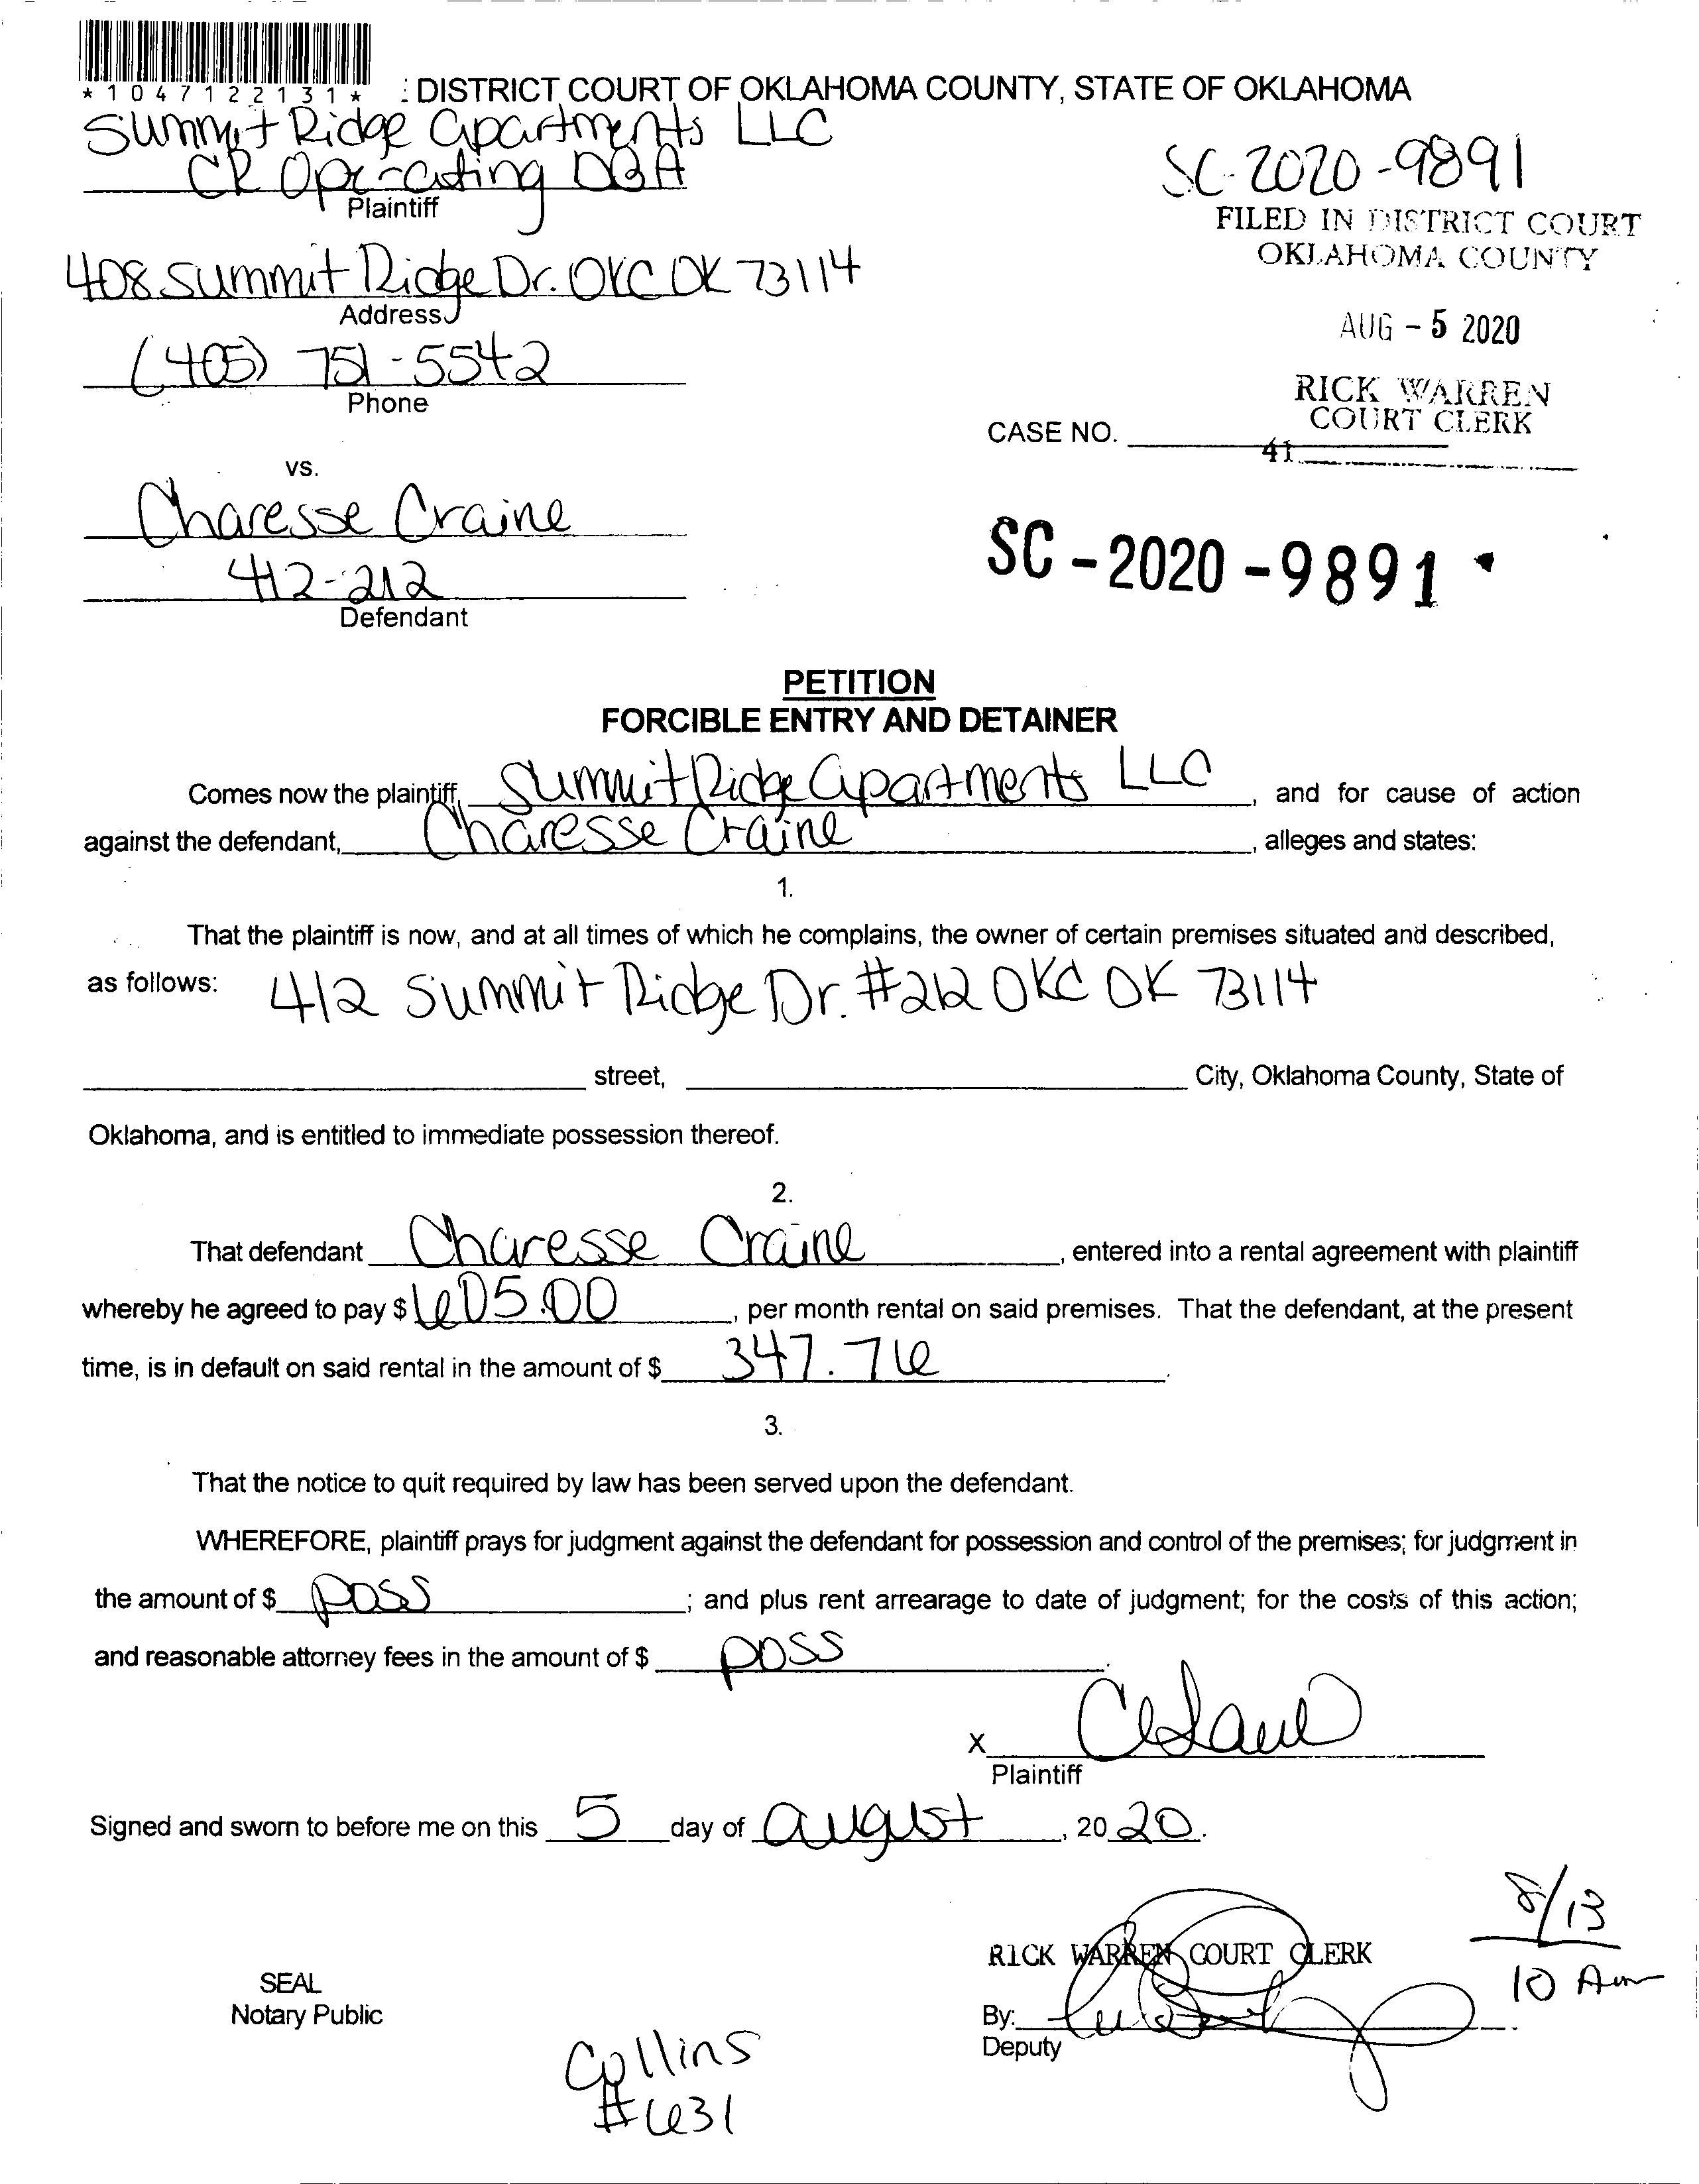 *1047122131*
: DISTRICT COURT OF OKLAHOMA COUNTY, STATE OF OKLAHOMA
Summit Ridge apartments LLC
CR Operating DBA
Plaintiff
SC-2020-9891
FILED IN DISTRICT COURT
OKLAHOMA COUNTY
408 Summit Ridge Dr. OKC OK 73114
Address
AUG - 5 2020
(405) 751-5542
Phone
RICK WARREN
COURT CLERK
CASE NO.
41
vs.
Charesse Craine
412-212
Defendant
SC-2020-9891
PETITION
FORCIBLE ENTRY AND DETAINER
Comes now the plaintiff, Summit Ridge apartments LLC, and for cause of action
against the defendant, Charesse Craine, alleges and states:
1.
That the plaintiff is now, and at all times of which he complains, the owner of certain premises situated and described,
as follows: 412 Summit Ridge Dr. #212 OKC OK 73114
street, City, Oklahoma County, State of
Oklahoma, and is entitled to immediate possession thereof.
2.
That defendant Charesse Craine, entered into a rental agreement with plaintiff
whereby he agreed to pay $605.00, per month rental on said premises. That the defendant, at the present
time, is in default on said rental in the amount of $ 347.76.
3.
That the notice to quit required by law has been served upon the defendant.
WHEREFORE, plaintiff prays for judgment against the defendant for possession and control of the premises; for judgment in
the amount of $ poss; and plus rent arrearage to date of judgment; for the costs of this action;
and reasonable attorney fees in the amount of $ poss.
X
Plaintiff
Signed and sworn to before me on this 5 day of august, 2020.
8/13
10 Am
RICK WARREN COURT CLERK
SEAL
Notary Public
By:
Deputy
Collins
#631